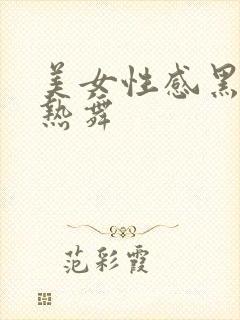 美女性感黑
热舞
范彩霞